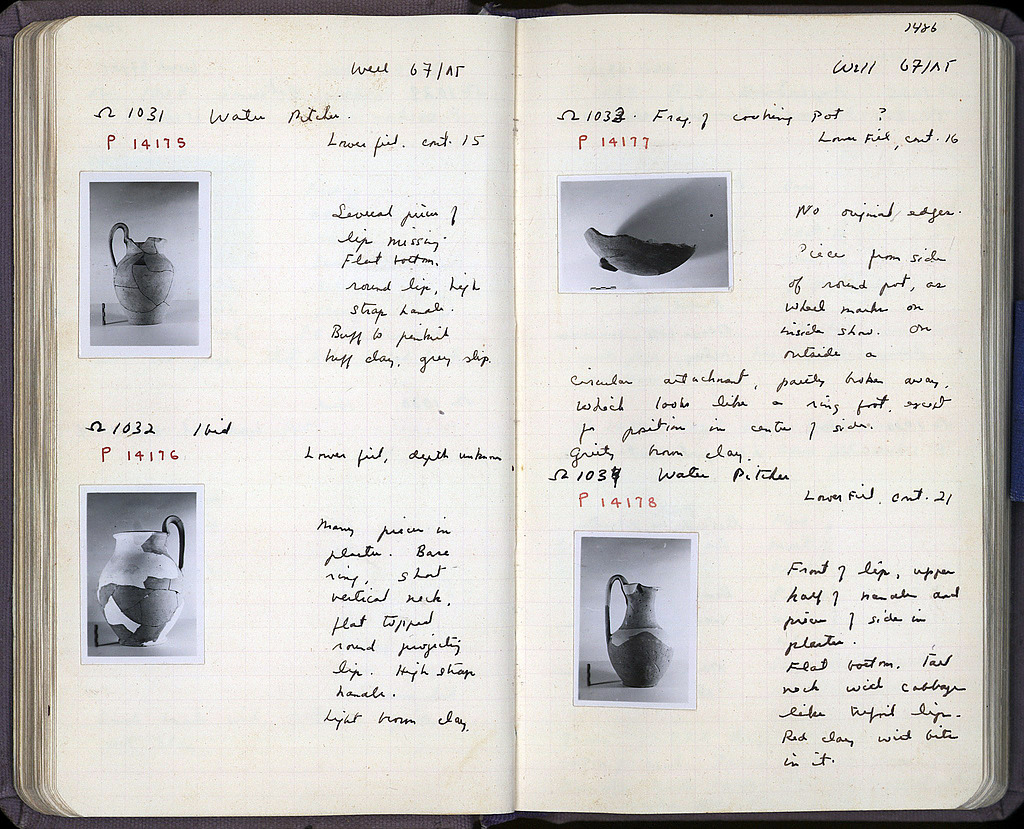 Well 67/ΛΓ
Ω 1031 Water Pitcher.
P 14175
Lower fill. cont. 15
Several pieces of
lip missing
Flat bottom.
round lip, high
strap handle.
Buff to pinkish
buff clay, grey slip.
Ω 1032 Ibid
P 14176
Lower fill, depth unknown.
Many pieces in
plaster. Base
ring, short
vertical neck,
flat topped
round projecting
lip. High strap
handle.
Light brown clay.
1486
Well 67/ΛΓ
Ω 1033. Frag. of cooking pot ?
P 14177
Lower Fill, cont. 16
No original edges.
Piece from side
of round pot, as
wheel marks on
inside show. On
outside a
circular attachment, partly broken away,
which looks like a ring foot, except
for position in center of side.
Gritty brown clay.
Ω 1034 Water Pitcher
P 14178
Lower Fill, cont. 21
Front of lip, upper
half of handle and
pieces of side in
plaster.
Flat bottom. Tall
neck with cabbage
like trefoil lip.
Red clay with bits
in it.